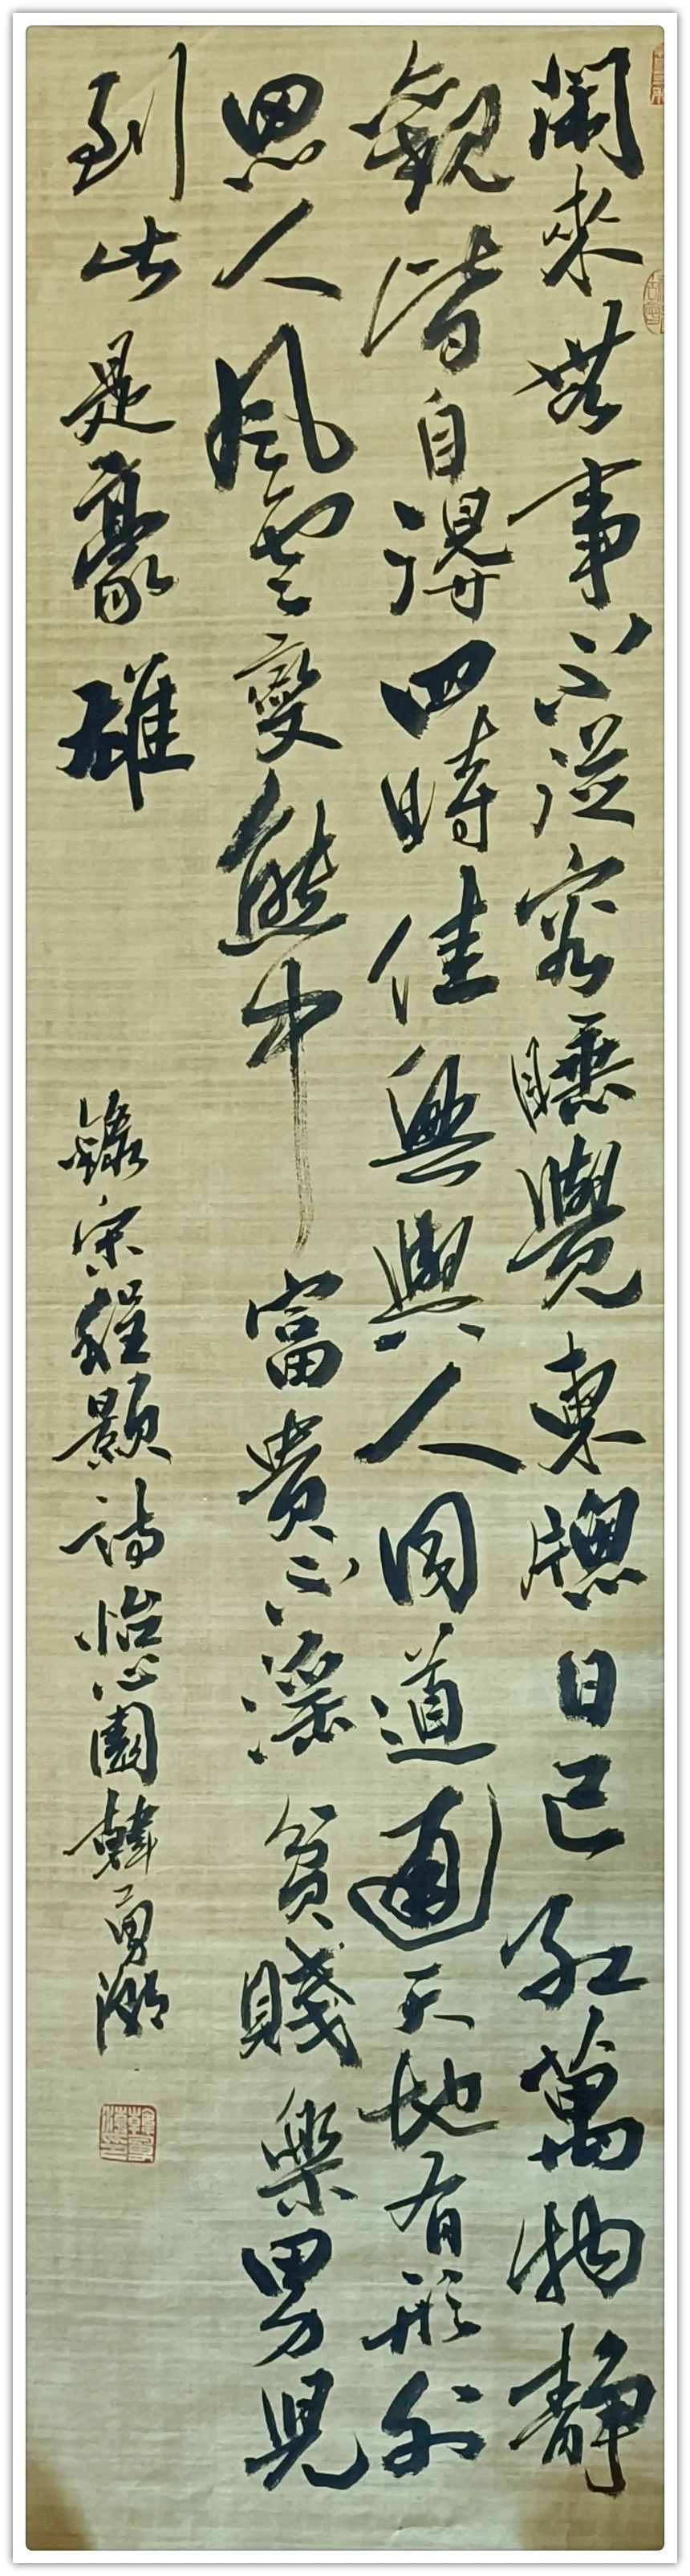 閑來無事不從容睡覺東牕日已紅萬物靜
觀皆自得四時佳興與人同道通天地有形外
思入風雲變態中富貴不淫貧賤樂男兒
到此是豪雄
錄宋程顥詩怡心園韓勇